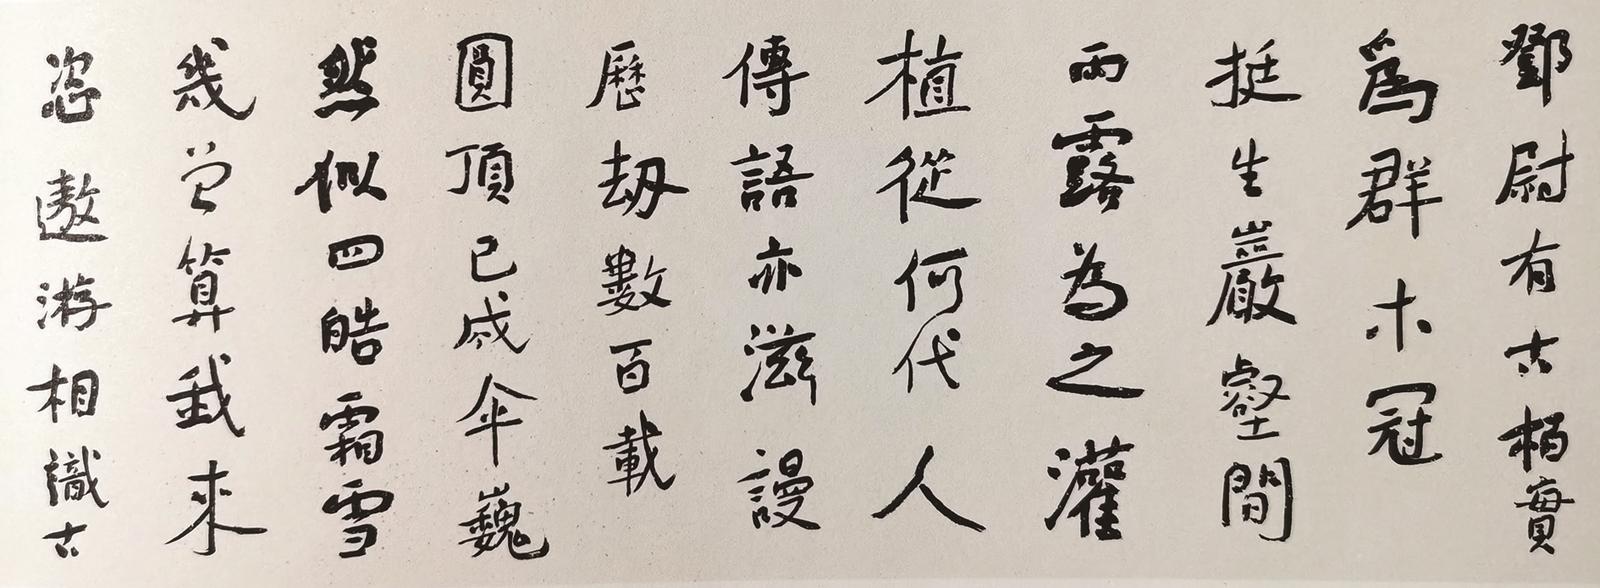 鄧尉有古柏實
爲群木冠
挺生巖壑間
雨露為之灌
植從何代人
傳語亦滋謾
歷劫數百載
圓頂已成傘巍
然似四皓霜雪
幾曾算我來
恣遨游相識古